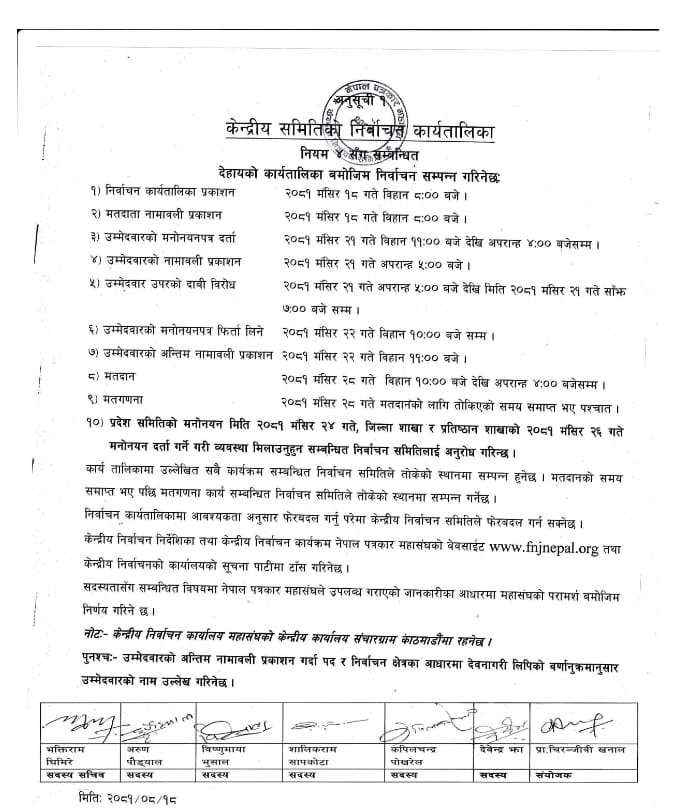 नेपाल पत्रकार महासंघ
अनुसूची १
केन्द्रीय समितिको निर्वाचन कार्यतालिका
नियम ४ सँग सम्बन्धित
देहायको कार्यतालिका बमोजिम निर्वाचन सम्पन्न गरिनेछः
१) निर्वाचन कार्यतालिका प्रकाशन २०८१ मंसिर १८ गते विहान ८:०० बजे ।
२) मतदाता नामावली प्रकाशन २०८१ मंसिर १८ गते विहान ८:०० बजे ।
३) उम्मेदवारको मनोनयनपत्र दर्ता २०८१ मंसिर २१ गते विहान ११:०० बजे देखि अपरान्ह ४:०० बजेसम्म ।
४) उम्मेदवारको नामावली प्रकाशन २०८१ मंसिर २१ गते अपरान्ह ५:०० बजे ।
५) उम्मेदवार उपरको दाबी विरोध २०८१ मंसिर २१ गते अपरान्ह ५:०० बजे देखि मिति २०८१ मंसिर २१ गते साँझ
७:०० बजे सम्म ।
६) उम्मेदवारको मनोनयनपत्र फिर्ता लिने २०८१ मंसिर २२ गते विहान १०:०० बजे सम्म ।
७) उम्मेदवारको अन्तिम नामावली प्रकाशन २०८१ मंसिर २२ गते विहान ११:०० बजे ।
८) मतदान २०८१ मंसिर २८ गते विहान १०:०० बजे देखि अपरान्ह ४:०० बजेसम्म ।
९) मतगणना २०८१ मंसिर २८ गते मतदानको लागि तोकिएको समय समाप्त भए पश्चात ।
१०) प्रदेश समितिको मनोनयन मिति २०८१ मंसिर २४ गते, जिल्ला शाखा र प्रतिष्ठान शाखाको २०८१ मंसिर २६ गते
मनोनयन दर्ता गर्ने गरी व्यवस्था मिलाउनुहुन सम्बन्धित निर्वाचन समितिलाई अनुरोध गरिन्छ ।
कार्य तालिकामा उल्लेखित सबै कार्यक्रम सम्बन्धित निर्वाचन समितिले तोकेको स्थानमा सम्पन्न हुनेछ । मतदानको समय
समाप्त भए पछि मतगणना कार्य सम्बन्धित निर्वाचन समितिले तोकेको स्थानमा सम्पन्न गर्नेछ ।
निर्वाचन कार्यतालिकामा आवश्यकता अनुसार फेरबदल गर्नु परेमा केन्द्रीय निर्वाचन समितिले फेरबदल गर्न सक्नेछ ।
केन्द्रीय निर्वाचन निर्देशिका तथा केन्द्रीय निर्वाचन कार्यक्रम नेपाल पत्रकार महासंघको वेवसाईट www.fnjnepal.org तथा
केन्द्रीय निर्वाचनको कार्यालयको सूचना पाटीमा टाँस गरिनेछ ।
सदस्यतासँग सम्बन्धित विषयमा नेपाल पत्रकार महासंघले उपलब्ध गराएको जानकारीका आधारमा महासंघको परामर्श बमोजिम
निर्णय गरिने छ ।
नोटः- केन्द्रीय निर्वाचन कार्यालय महासंघको केन्द्रीय कार्यालय संचारग्राम काठमाडौंमा रहनेछ ।
पुनश्चः- उम्मेदवारको अन्तिम नामावली प्रकाशन गर्दा पद र निर्वाचन क्षेत्रका आधारमा देवनागरी लिपिको वर्णानुक्रमानुसार
उम्मेदवारको नाम उल्लेख गरिनेछ ।
भक्तिराम घिमिरे सदस्य सचिव
अरुण पौड्याल सदस्य
विष्णुमाया भुसाल सदस्य
शालिकराम सापकोटा सदस्य
कपिलचन्द्र पोखरेल सदस्य
देवेन्द्र झा सदस्य
प्रा.चिरञ्जीवी खनाल संयोजक
मितिः २०८१/०८/१८